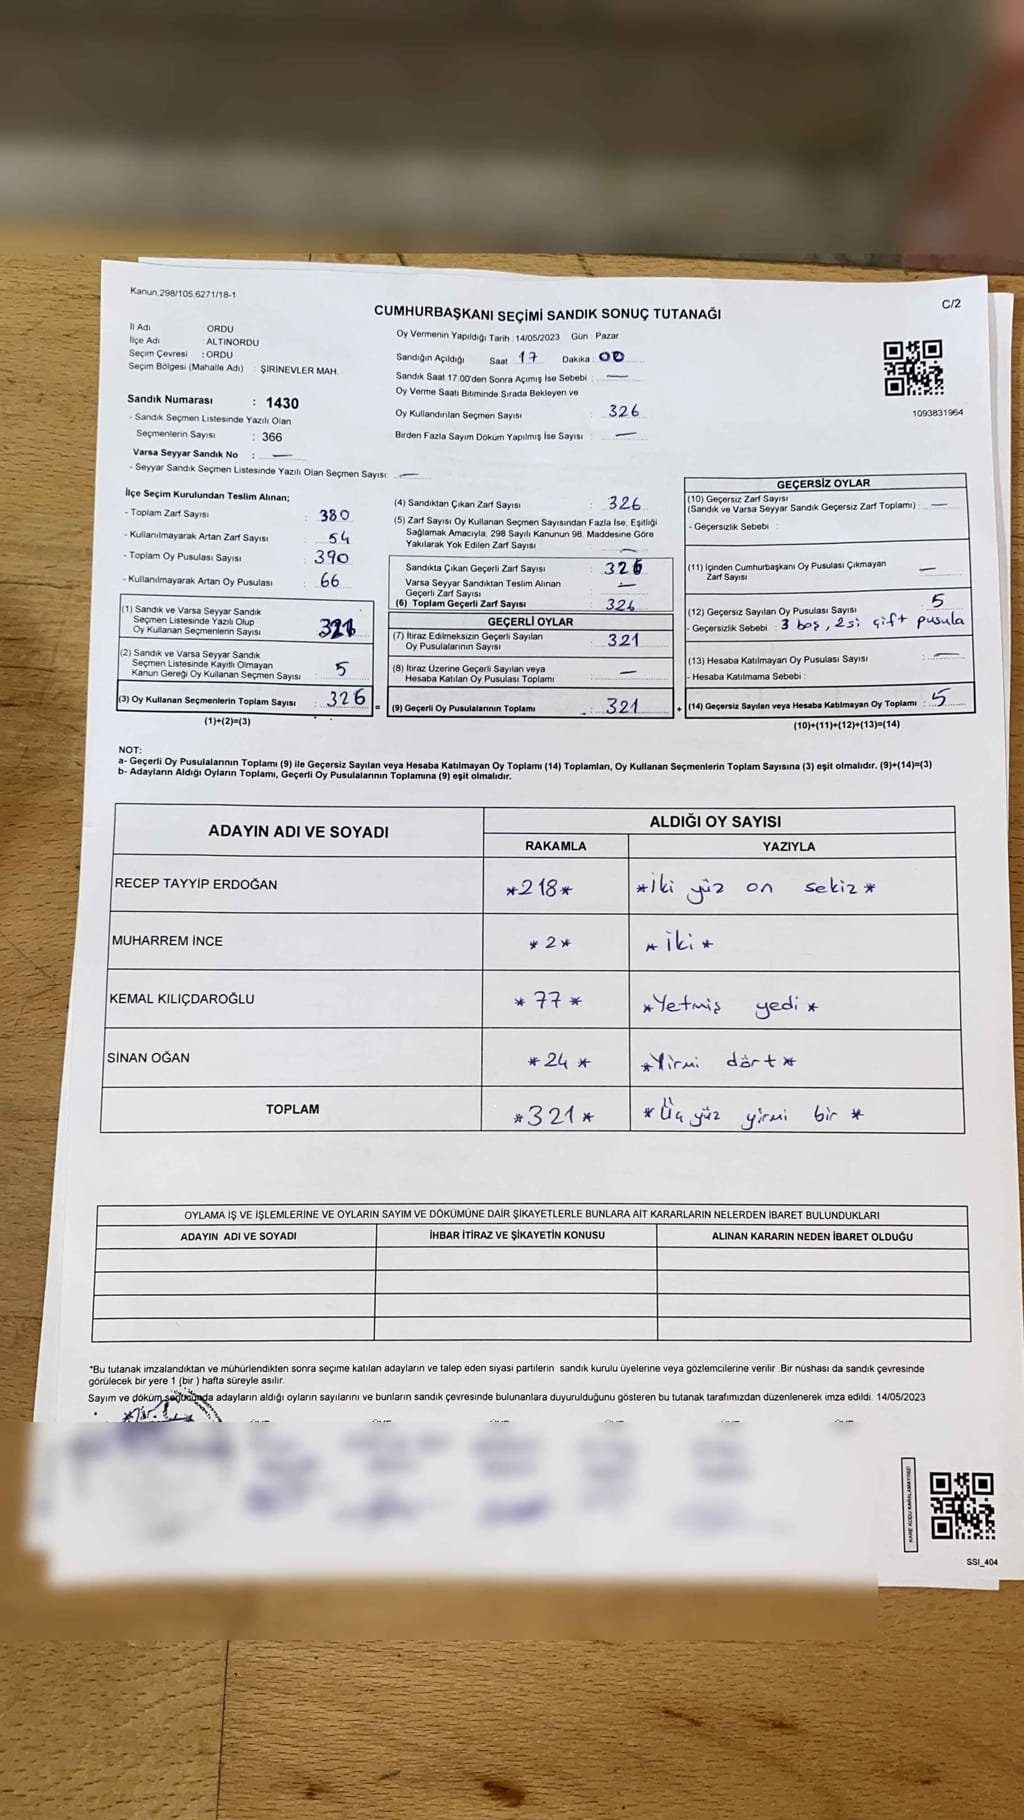 Kanun.298/105,6271/18-1
C/2
CUMHURBAŞKANI SEÇİMİ SANDIK SONUÇ TUTANAĞI
İl Adı ORDU
İlçe Adı ALTINORDU
Seçim Çevresi : ORDU
Seçim Bölgesi (Mahalle Adı) : ŞİRİNEVLER MAH.
Sandık Numarası : 1430
- Sandık Seçmen Listesinde Yazılı Olan
Seçmenlerin Sayısı : 366
Varsa Seyyar Sandık No : —
- Seyyar Sandık Seçmen Listesinde Yazılı Olan Seçmen Sayısı: —
Oy Vermenin Yapıldığı Tarih : 14/05/2023 Gün : Pazar
Sandığın Açıldığı Saat 17 Dakika : 00
Sandık Saat 17:00'den Sonra Açımış İse Sebebi : —
Oy Verme Saati Bitiminde Sırada Bekleyen ve
Oy Kullandırılan Seçmen Sayısı : 326
Birden Fazla Sayım Döküm Yapılmış İse Sayısı : —
1093831964
İlçe Seçim Kurulundan Teslim Alınan;
- Toplam Zarf Sayısı : 380
- Kullanılmayarak Artan Zarf Sayısı : 54
- Toplam Oy Pusulası Sayısı : 390
- Kullanılmayarak Artan Oy Pusulası : 66
(1) Sandık ve Varsa Seyyar Sandık
Seçmen Listesinde Yazılı Olup
Oy Kullanan Seçmenlerin Sayısı : 321
(2) Sandık ve Varsa Seyyar Sandık
Seçmen Listesinde Kayıtlı Olmayan
Kanun Gereği Oy Kullanan Seçmen Sayısı : 5
(3) Oy Kullanan Seçmenlerin Toplam Sayısı : 326
(1)+(2)=(3)
(4) Sandıktan Çıkan Zarf Sayısı : 326
(5) Zarf Sayısı Oy Kullanan Seçmen Sayısından Fazla İse, Eşitliği
Sağlamak Amacıyla, 298 Sayılı Kanunun 98. Maddesine Göre
Yakılarak Yok Edilen Zarf Sayısı : —
Sandıkta Çıkan Geçerli Zarf Sayısı : 326
Varsa Seyyar Sandıktan Teslim Alınan
Geçerli Zarf Sayısı : —
(6) Toplam Geçerli Zarf Sayısı : 326
GEÇERLİ OYLAR
(7) İtiraz Edilmeksizin Geçerli Sayılan
Oy Pusulalarının Sayısı : 321
(8) İtiraz Üzerine Geçerli Sayılan veya
Hesaba Katılan Oy Pusulası Toplamı : —
= (9) Geçerli Oy Pusulalarının Toplamı : 321
GEÇERSİZ OYLAR
(10) Geçersiz Zarf Sayısı
(Sandık ve Varsa Seyyar Sandık Geçersiz Zarf Toplamı) : —
- Geçersizlik Sebebi :
(11) İçinden Cumhurbaşkanı Oy Pusulası Çıkmayan
Zarf Sayısı : —
(12) Geçersiz Sayılan Oy Pusulası Sayısı : 5
- Geçersizlik Sebebi : 3 boş, 2si çift pusula
(13) Hesaba Katılmayan Oy Pusulası Sayısı : —
- Hesaba Katılmama Sebebi :
+ (14) Geçersiz Sayılan veya Hesaba Katılmayan Oy Toplamı : 5
(10)+(11)+(12)+(13)=(14)
NOT:
a- Geçerli Oy Pusulalarının Toplamı (9) ile Geçersiz Sayılan veya Hesaba Katılmayan Oy Toplamı (14) Toplamları, Oy Kullanan Seçmenlerin Toplam Sayısına (3) eşit olmalıdır. (9)+(14)=(3)
b- Adayların Aldığı Oyların Toplamı, Geçerli Oy Pusulalarının Toplamına (9) eşit olmalıdır.
ADAYIN ADI VE SOYADI ALDIĞI OY SAYISI
RAKAMLA YAZIYLA
RECEP TAYYİP ERDOĞAN *218* *İki yüz on sekiz*
MUHARREM İNCE *2* *İki*
KEMAL KILIÇDAROĞLU *77* *Yetmiş yedi*
SİNAN OĞAN *24* *Yirmi dört*
TOPLAM *321* *Üç yüz yirmi bir*
OYLAMA İŞ VE İŞLEMLERİNE VE OYLARIN SAYIM VE DÖKÜMÜNE DAİR ŞİKAYETLERLE BUNLARA AİT KARARLARIN NELERDEN İBARET BULUNDUKLARI
ADAYIN ADI VE SOYADI İHBAR İTİRAZ VE ŞİKAYETİN KONUSU ALINAN KARARIN NEDEN İBARET OLDUĞU
*Bu tutanak imzalandıktan ve mühürlendikten sonra seçime katılan adayların ve talep eden siyasi partilerin sandık kurulu üyelerine veya gözlemcilerine verilir. Bir nüshası da sandık çevresinde
görülecek bir yere 1 (bir ) hafta süreyle asılır.
Sayım ve döküm sonucunda adayların aldığı oyların sayılarını ve bunların sandık çevresinde bulunanlara duyurulduğunu gösteren bu tutanak tarafımızdan düzenlenerek imza edildi. 14/05/2023
KARE KODU KARALAMAYINIZ!
SSI_404